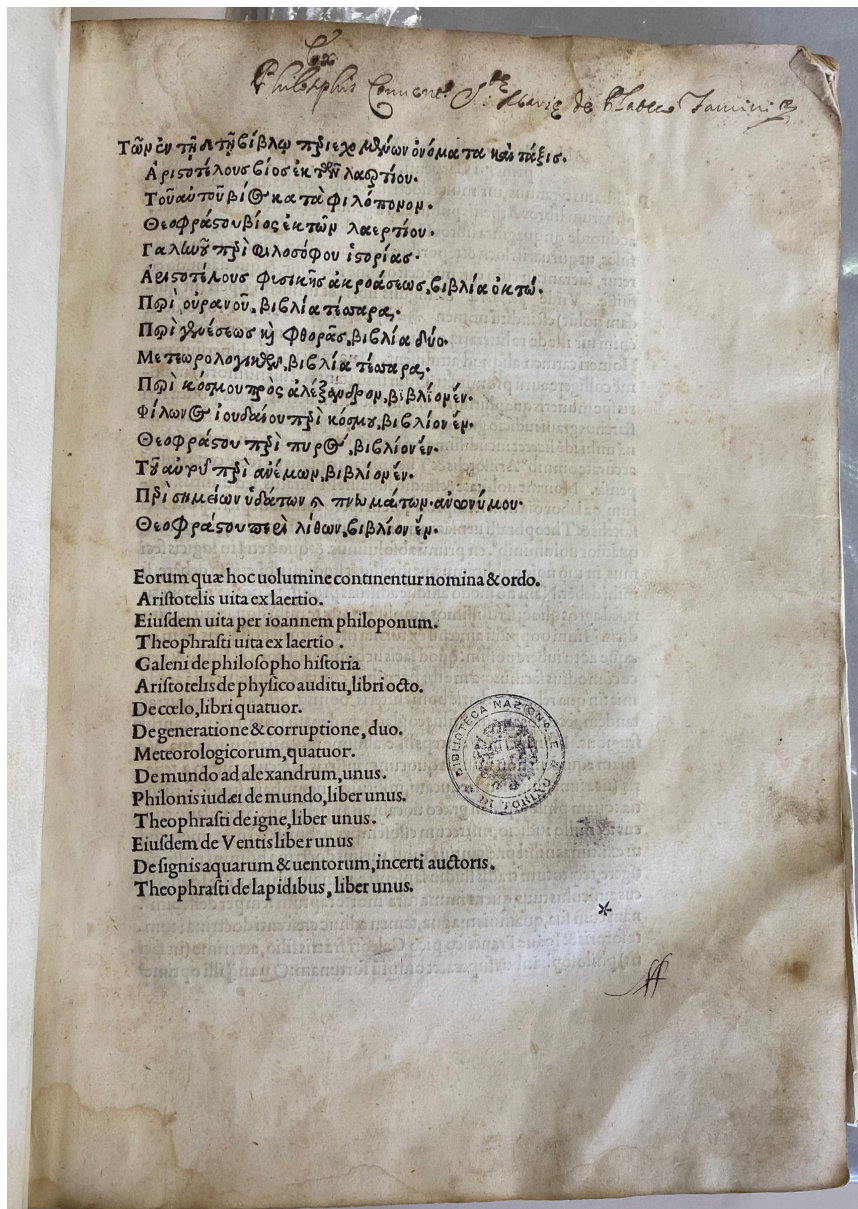 Τῶν ἐν τῇδε τῇ βίβλῳ περιεχομένων ὀνόματα καὶ τάξις.
Ἀριστοτέλους βίος ἐκ τῶν λαερτίου.
Τοῦ αὐτοῦ βίος κατὰ φιλόπονον.
Θεοφράστου βίος ἐκ τῶν λαερτίου.
Γαληνοῦ περὶ φιλοσόφου ἱστορίας.
Ἀριστοτέλους φυσικῆς ἀκροάσεως, βιβλία ὀκτώ.
Περὶ οὐρανοῦ, βιβλία τέσσαρα.
Περὶ γενέσεως καὶ φθορᾶς, βιβλία δύο.
Μετεωρολογικῶν, βιβλία τέσσαρα.
Περὶ κόσμου πρὸς ἀλέξανδρον, βιβλίον ἕν.
Φίλωνος ἰουδαίου περὶ κόσμου, βιβλίον ἕν.
Θεοφράστου περὶ πυρὸς, βιβλίον ἕν.
Τοῦ αὐτοῦ περὶ ἀνέμων, βιβλίον ἕν.
Περὶ σημείων ὑδάτων καὶ πνευμάτων. ἀνωνύμου.
Θεοφράστου περὶ λίθων, βιβλίον ἕν.
Eorum quæ hoc uolumine continentur nomina & ordo.
Aristotelis uita ex laertio.
Eiusdem uita per ioannem philoponum.
Theophrasti uita ex laertio.
Galeni de philosopho historia
Aristotelis de physico auditu, libri octo.
De cœlo, libri quatuor.
De generatione & corruptione, duo.
Meteorologicorum, quatuor.
De mundo ad alexandrum, unus.
Philonis iudæi de mundo, liber unus.
Theophrasti de igne, liber unus.
Eiusdem de Ventis liber unus
De signis aquarum & uentorum, incerti auctoris.
Theophrasti de lapidibus, liber unus.
BIBLIOTECA NAZIONALE DI TORINO